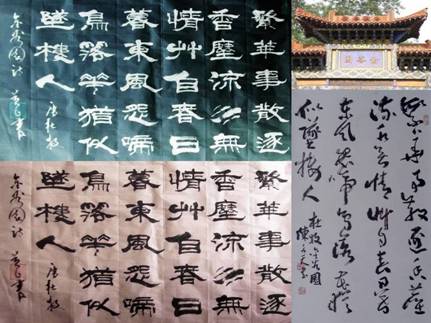 繁華事散逐
香塵流水無
情艸自春日
暮東風怨啼
鳥落華猶似
墜樓人
唐杜牧
金谷園詩
繁華事散逐
香塵流水無
情艸自春日
暮東風怨啼
鳥落華猶似
墜樓人
唐杜牧
金谷園詩
金谷園
繁華事散逐香塵
流水無情草自春日暮
東風怨啼鳥落花猶
似墜樓人
杜牧金谷園